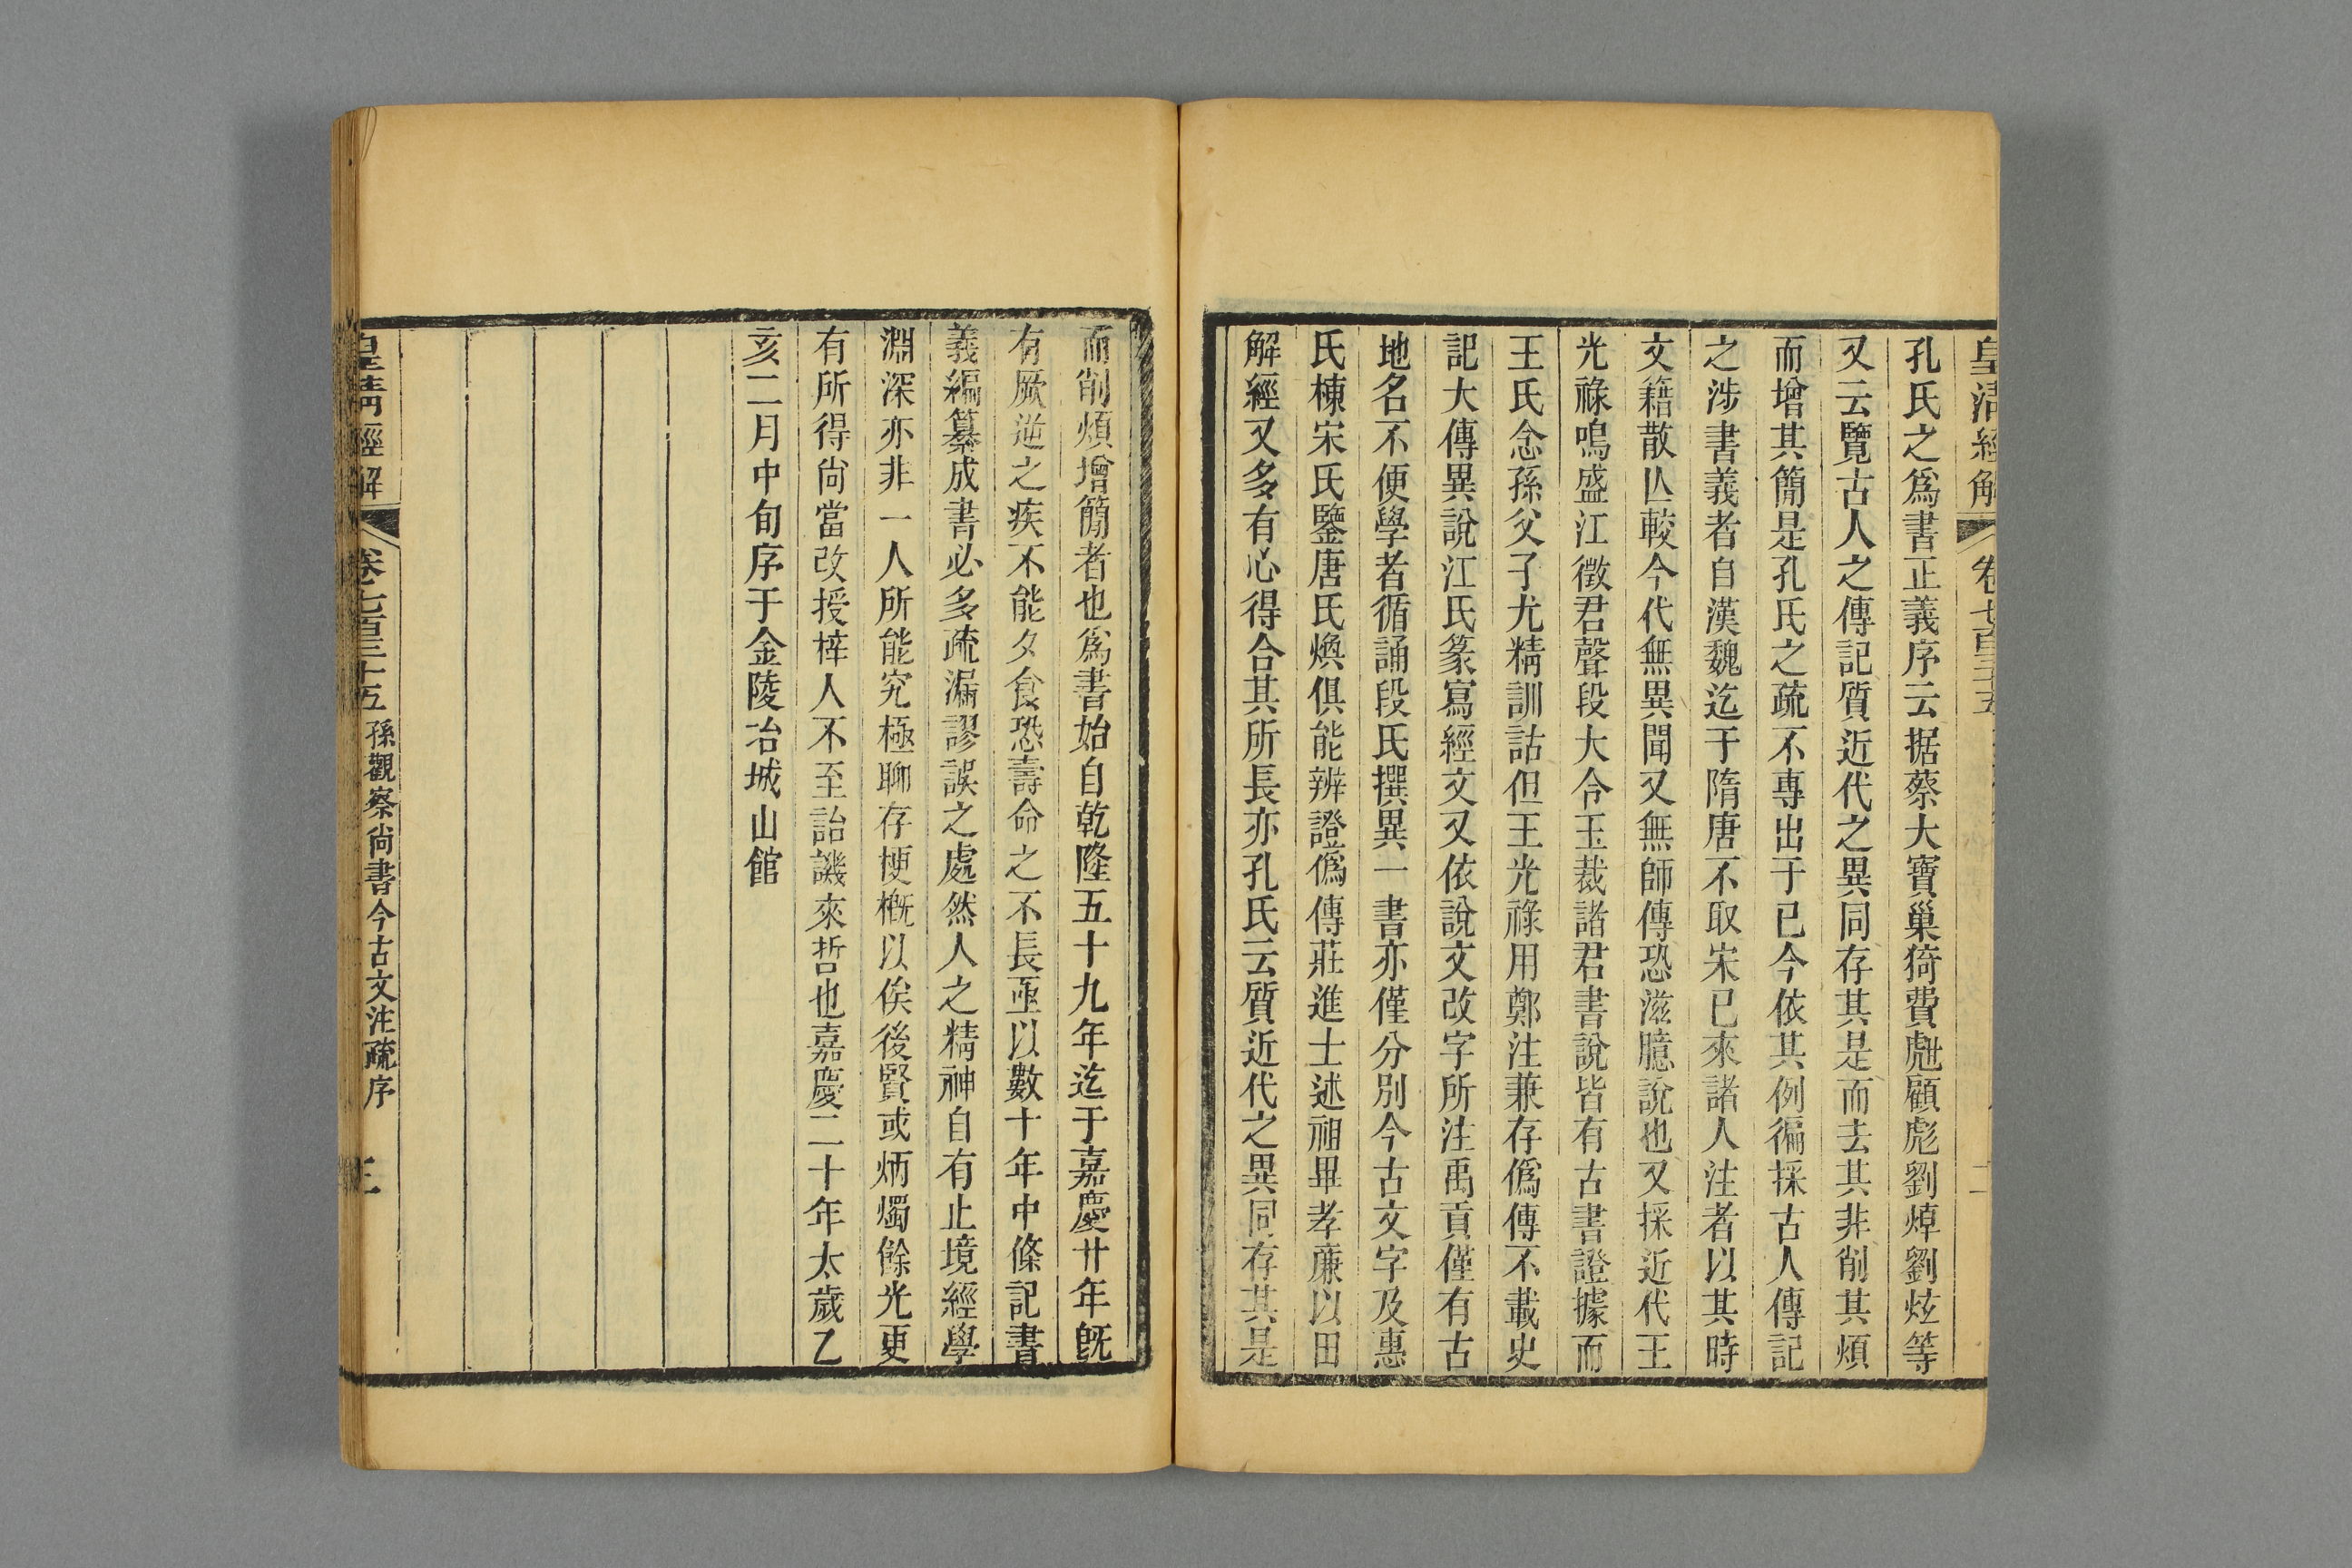 皇清經解 卷七百三十五
孔氏之爲書正義序云据蔡大寶巢猗費甝顧彪劉焯劉炫等
又云覽古人之傳記質近代之異同存其是而去其非削其煩
而增其簡是孔氏之疏不專出于已今依其例徧採古人傳記
之涉書義者自漢魏迄于隋唐不取宋已來諸人注者以其時
文籍散亾較今代無異聞又無師傳恐滋臆說也又採近代王
光祿鳴盛江徵君聲段大令玉裁諸君書說皆有古書證據而
王氏念孫父子尤精訓詁但王光祿用鄭注兼存僞傳不載史
記大傳異說江氏篆寫經文又依說文改字所注禹貢僅有古
地名不便學者循誦段氏撰異一書亦僅分別今古文字及惠
氏棟宋氏鑒唐氏煥俱能辨證僞傳莊進士述祖畢孝廉以田
解經又多有心得合其所長亦孔氏云質近代之異同存其是
而削煩增簡者也爲書始自乾隆五十九年迄于嘉慶廿年旣
有厥逆之疾不能夕食恐壽命之不長亟以數十年中條記書
義編纂成書必多疏漏謬誤之處然人之精神自有止境經學
淵深亦非一人所能究極聊存梗槪以俟後賢或炳燭餘光更
有所得尙當改授梓人不至詒譏來哲也嘉慶二十年太歲乙
亥二月中旬序于金陵冶城山館
皇清經解 卷七百三十五 孫觀察尙書今古文注疏序 三